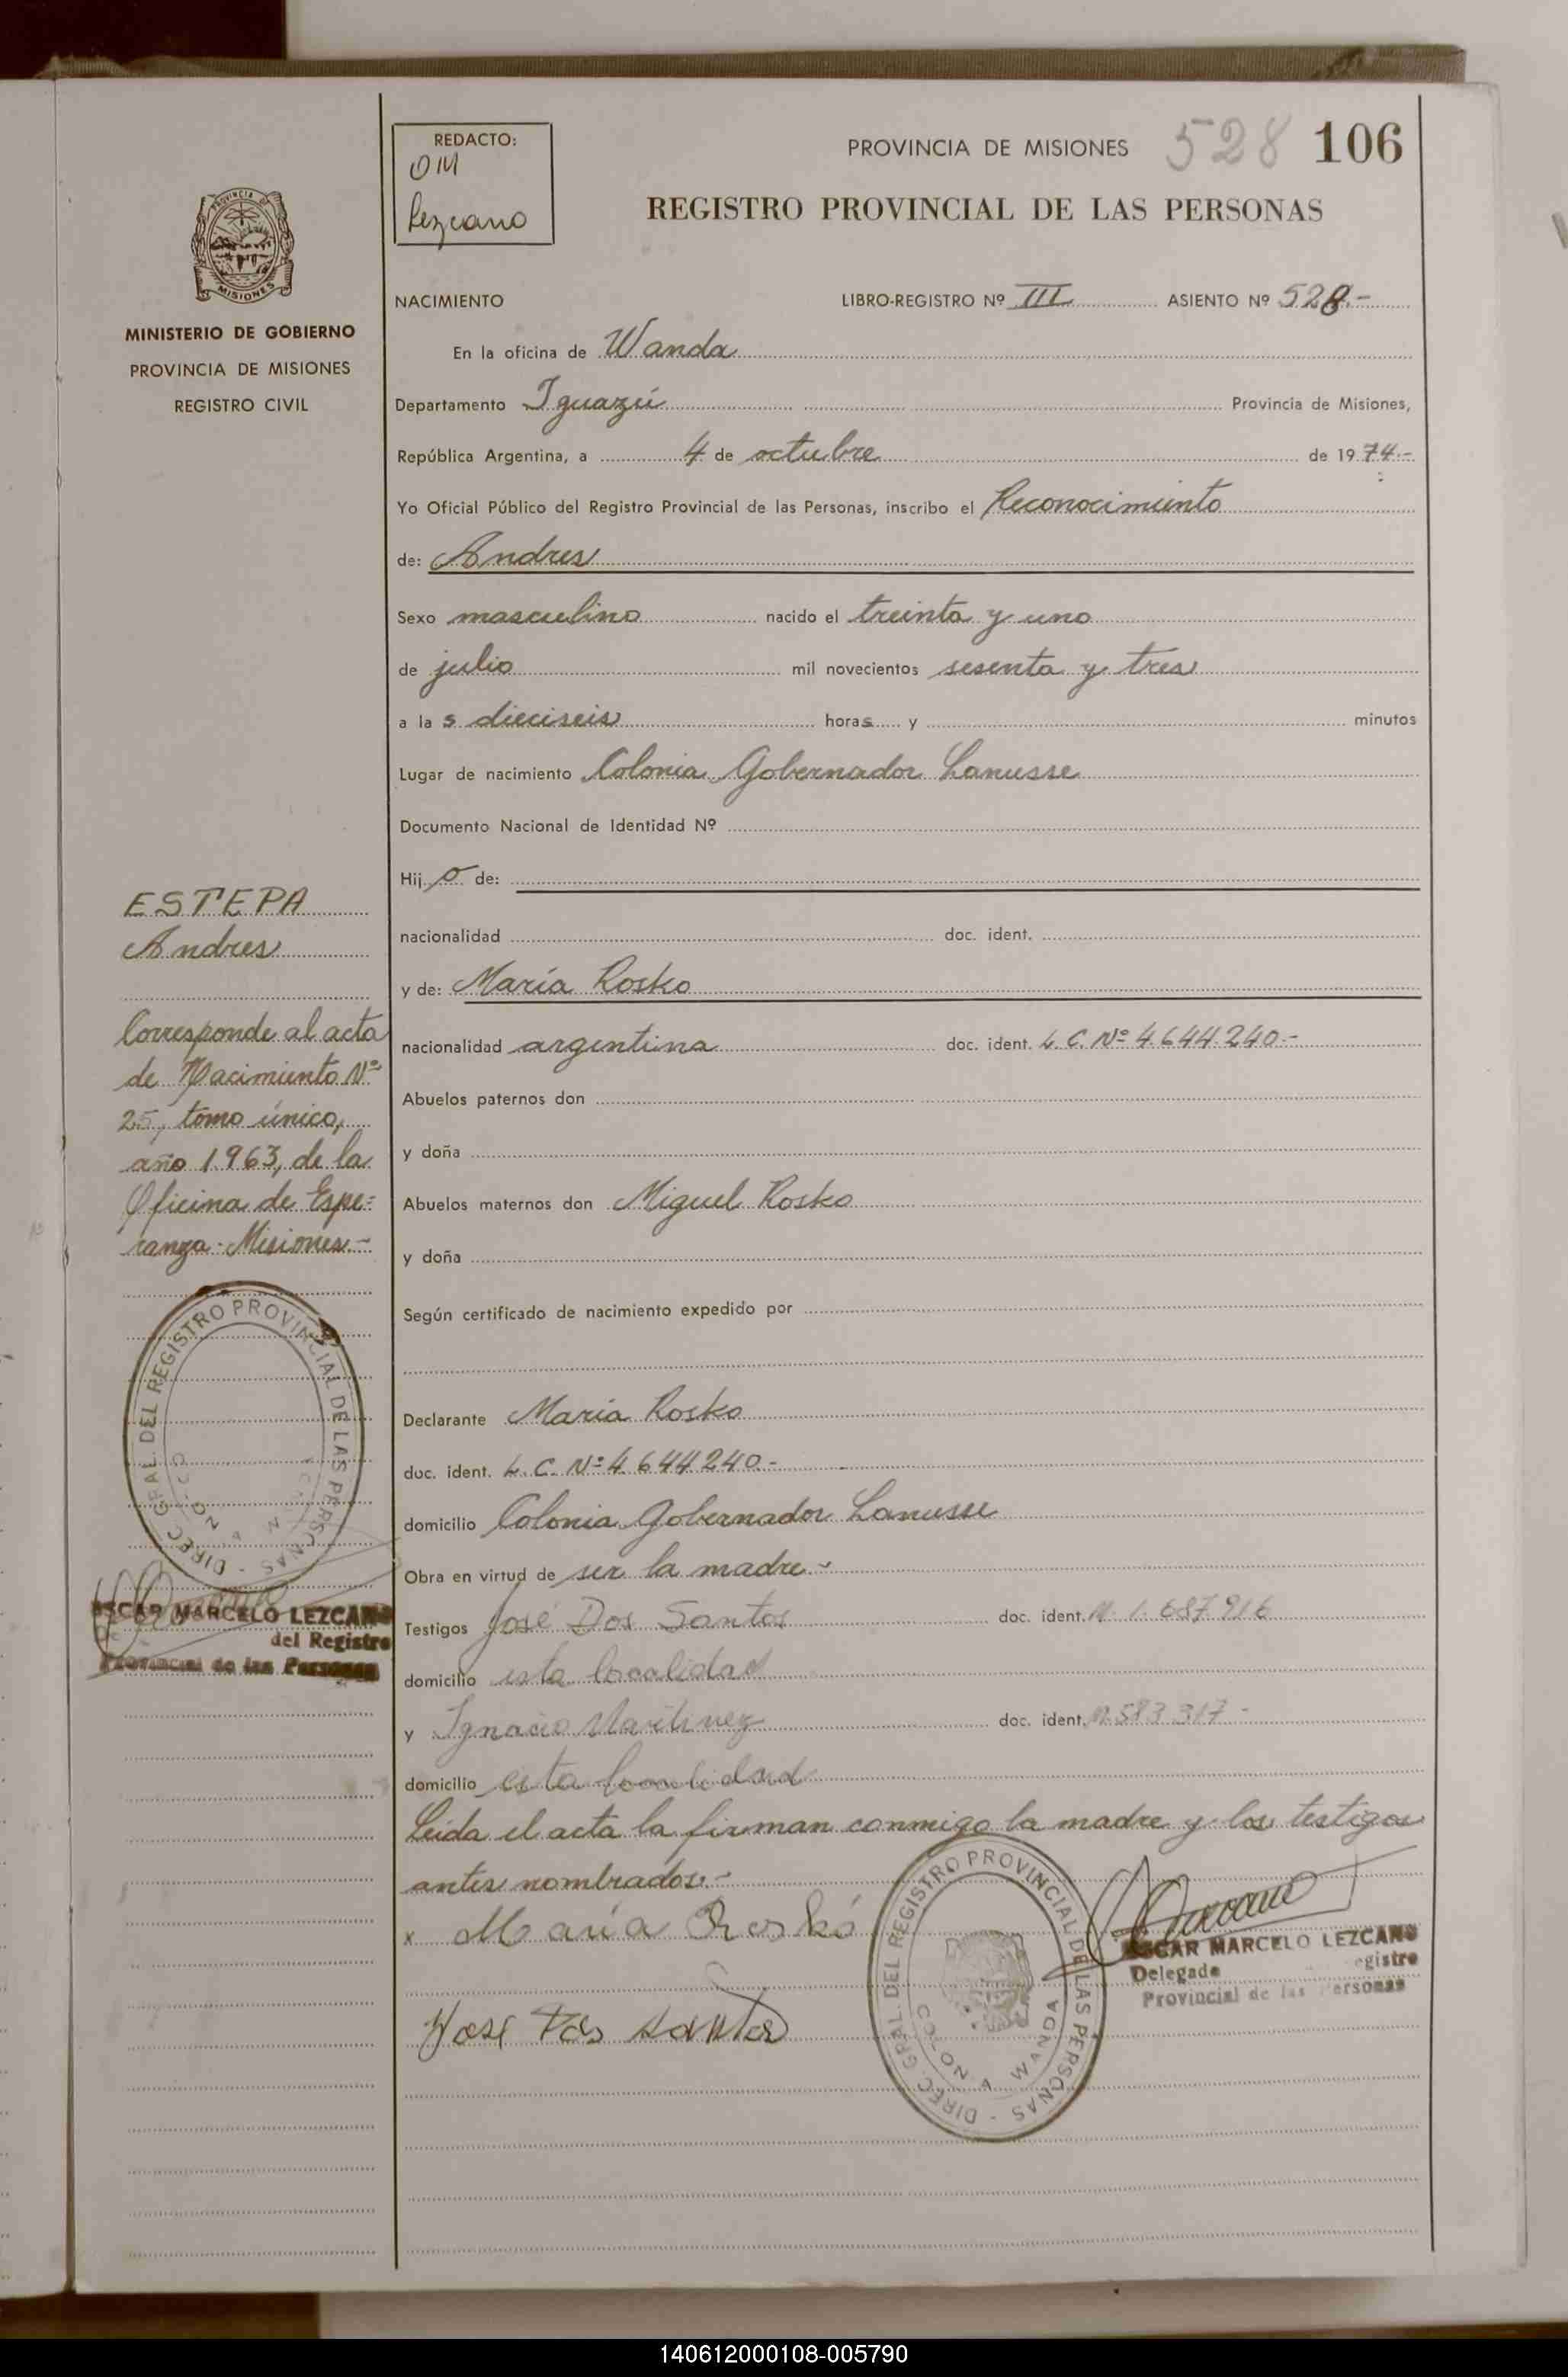 REDACTO:
OM
Lezcano
PROVINCIA DE MISIONES 528 106
REGISTRO PROVINCIAL DE LAS PERSONAS
PROVINCIA DE
MISIONES
MINISTERIO DE GOBIERNO
PROVINCIA DE MISIONES
REGISTRO CIVIL
NACIMIENTO LIBRO-REGISTRO Nº III ASIENTO Nº 528.-
En la oficina de Wanda
Departamento Iguazú Provincia de Misiones,
República Argentina, a 4 de octubre de 1974.-
Yo Oficial Público del Registro Provincial de las Personas, inscribo el Reconocimiento
de: Andres
Sexo masculino nacido el treinta y uno
de julio mil novecientos sesenta y tres
a la s dieciseis horas y minutos
Lugar de nacimiento Colonia Gobernador Lanusse
Documento Nacional de Identidad Nº
Hijo de:
nacionalidad doc. ident.
y de: María Rosko
nacionalidad argentina doc. ident. L. C. Nº 4.644.240.-
Abuelos paternos don
y doña
Abuelos maternos don Miguel Rosko
y doña
Según certificado de nacimiento expedido por
Declarante María Rosko
doc. ident. L. C. Nº 4.644.240.-
domicilio Colonia Gobernador Lanusse
Obra en virtud de ser la madre.-
Testigos José Dos Santos doc. ident. M. 1.687.916
domicilio esta localidad
y Ignacio Martinez doc. ident. M. 583.317-
domicilio esta localidad
Leída el acta la firman conmigo la madre y los testigos
antes nombrados.-
x María Roskó
José Dos Santos
DIREC. GRAL. DEL REGISTRO PROVINCIAL DE LAS PERSONAS -
COLONIA WANDA
OSCAR MARCELO LEZCANO
Delegado Registro
Provincial de las Personas
ESTEPA
Andres
Corresponde al acta
de Nacimiento Nº
25, tomo único,
año 1963, de la
Oficina de Espe=
ranza - Misiones.-
DIREC. GRAL. DEL REGISTRO PROVINCIAL DE LAS PERSONAS -
OSCAR MARCELO LEZCANO
del Registro
Provincial de las Personas
140612000108-005790